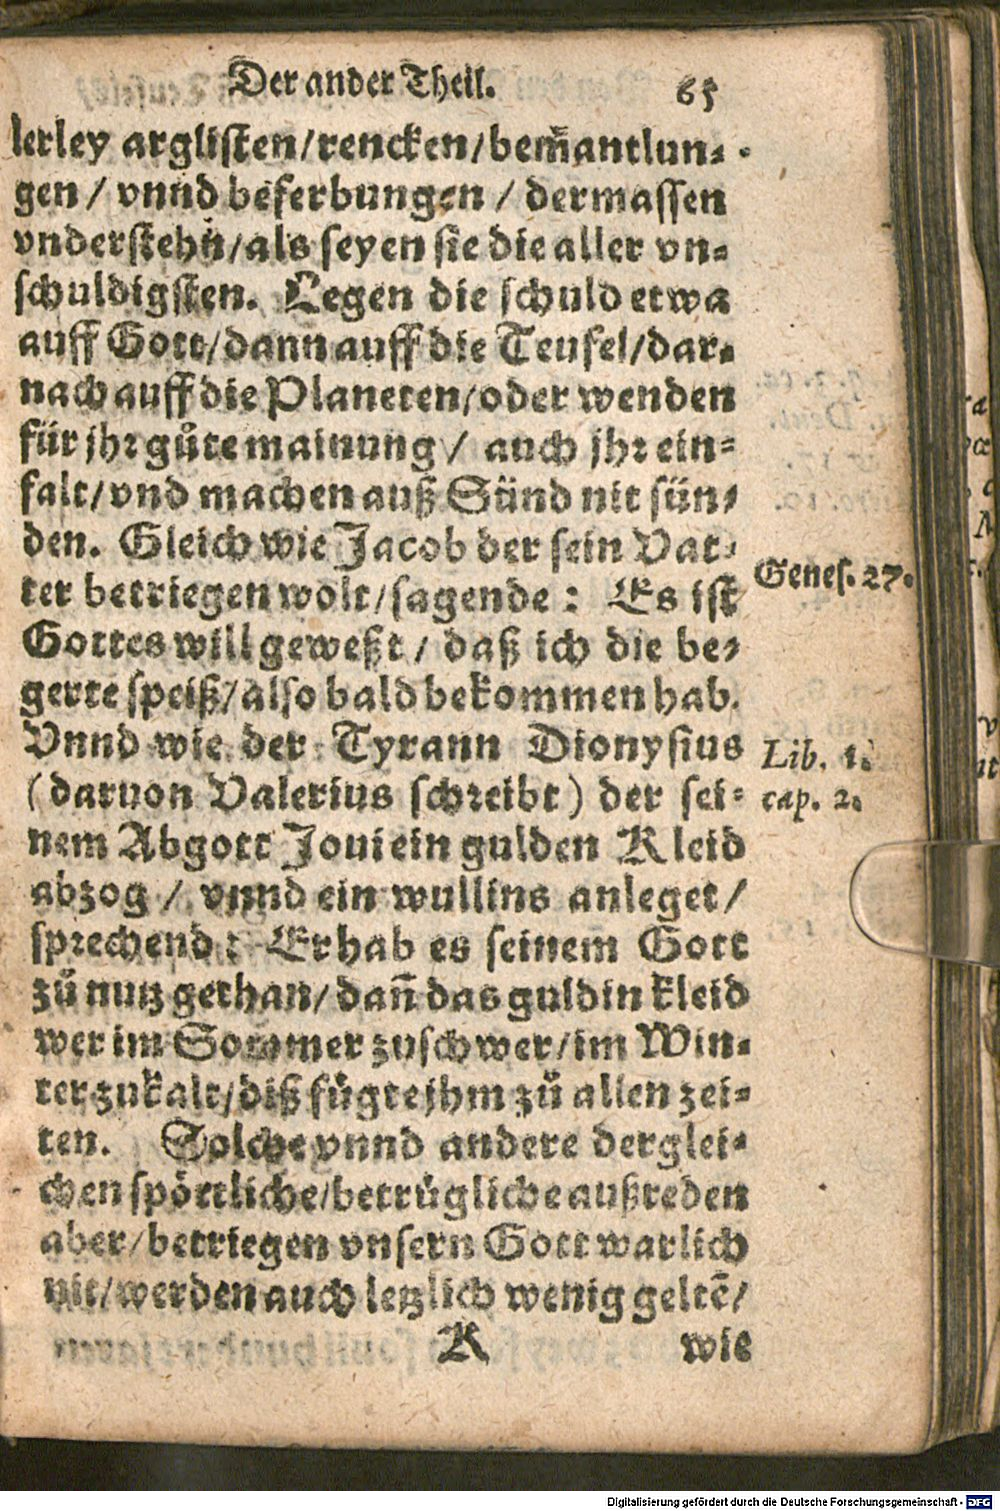 Der ander Theil. 65
lerley arglisten/rencken/bem̃antlun-
gen / vnnd beferbungen / dermassen
vnderstehn/als seyen sie die aller vn-
schuldigsten. Legen die schuld etwa
auff Gott/dann auff die Teufel/dar-
nach auff die Planeten/oder wenden
für jhr gůte mainung / auch jhr ein-
falt/vnd machen auß Sünd nit sün-
den. Gleich wie Jacob der sein Vat-
ter betriegen wolt/sagende : Es ist
Genes. 27.
Gottes will geweßt / daß ich die be-
gerte speiß/also bald bekommen hab.
Vnnd wie der Tyrann Dionysius
Lib. 1.
(daruon Valerius schreibt) der sei-
cap. 2.
nem Abgott Joui ein gulden Kleid
abzog / vnnd ein wullins anleget/
sprechend : Er hab es seinem Gott
zů nutz gethan/dañ das guldin kleid
wer im Sommer zuschwer/im Win-
ter zukalt/diß fůgte jhm zů allen zei-
ten. Solche vnnd andere derglei-
chen spöttliche/betrůgliche außreden
aber/betriegen vnsern Gott warlich
nit/werden auch letzlich wenig geltẽ/
K wie
Digitalisierung gefördert durch die Deutsche Forschungsgemeinschaft - DFG